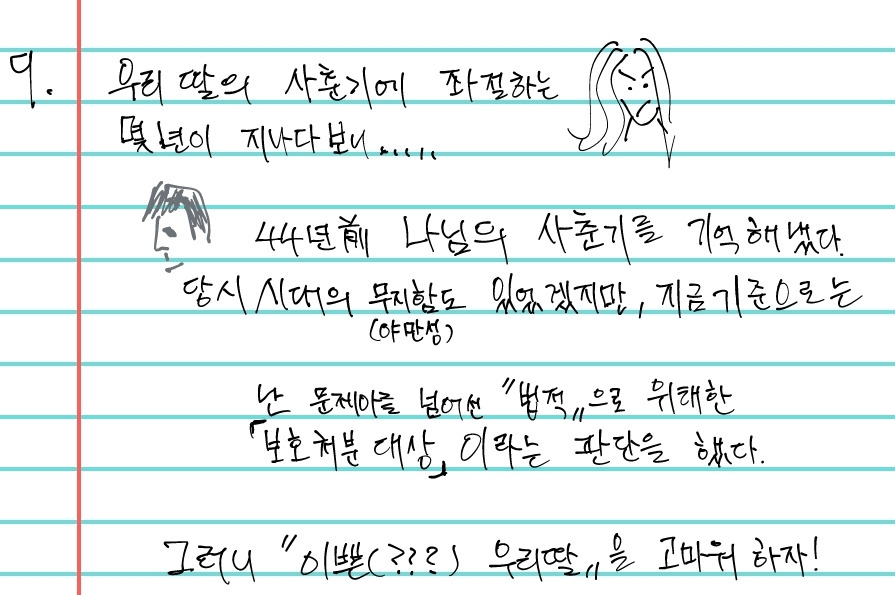 9. 우리 딸의 사춘기에 좌절하는
몇년이 지나다보니.....
44년前 나님의 사춘기를 기억해냈다.
당시 시대의 무지함도 있었겠지만, 지금기준으로는
(야만성)
난 문제아를 넘어선 "법적"으로 위태한
「보호처분대상」이라는 판단을 했다.
그러니 "이쁜(???) 우리딸"을 고마워 하자!